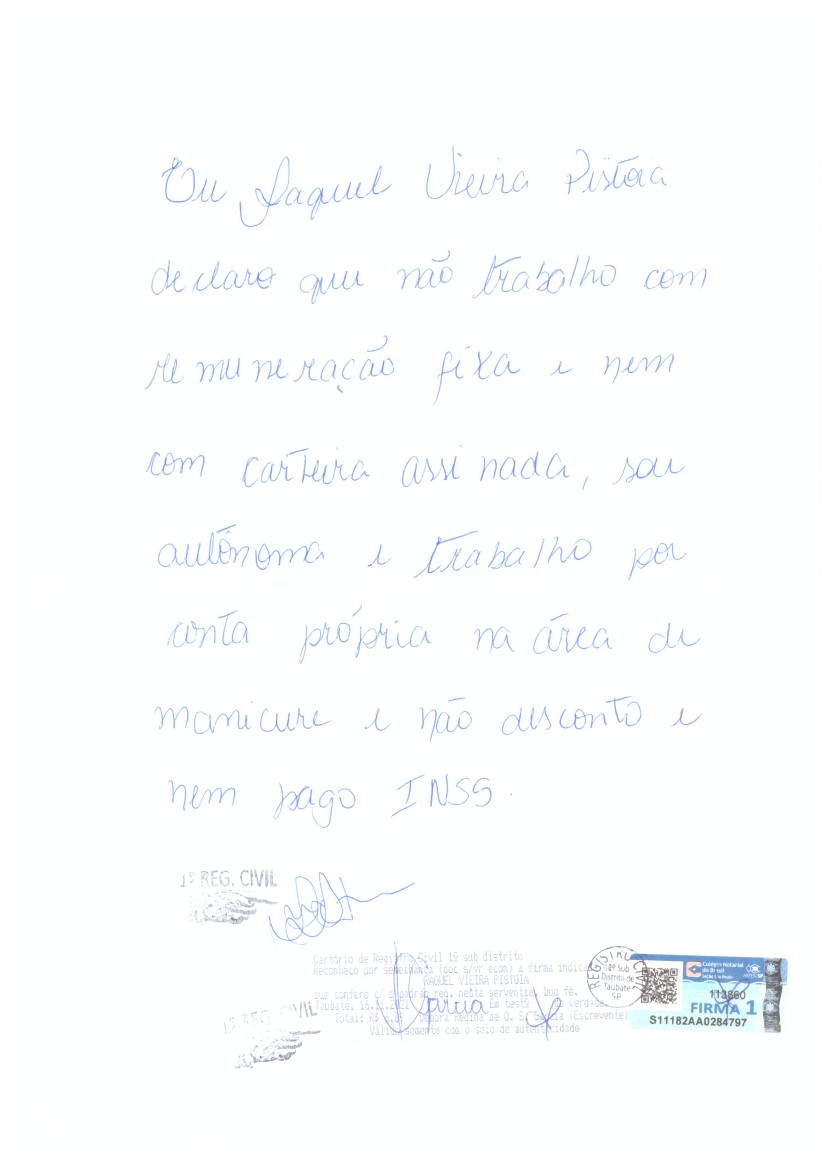 Eu Raquel Vieira Pistoia
declaro que não trabalho com
remuneração fixa e nem
com carteira assinada, sou
autônoma e trabalho por
conta própria na área de
manicure e não desconto e
nem pago INSS.
1º REG. CIVIL
Cartório de Registro Civil 1º sub distrito
Reconheço por semelhança (doc s/vr econ) a firma
RAQUEL VIEIRA PISTOIA
que confere c/ o padrão reg. nesta serventia. Dou fé.
Taubaté, 16. Em testº da verdade
Total: R$ Debora Regina de O. S. (Escrevente)
Válido somente com o selo de autenticidade
Marcia
1º REG. CIVIL
REGISTRO CIVIL
1º Sub
Distrito de
Taubaté
SP
Colégio Notarial
do Brasil
113860
FIRMA 1
S11182AA0284797